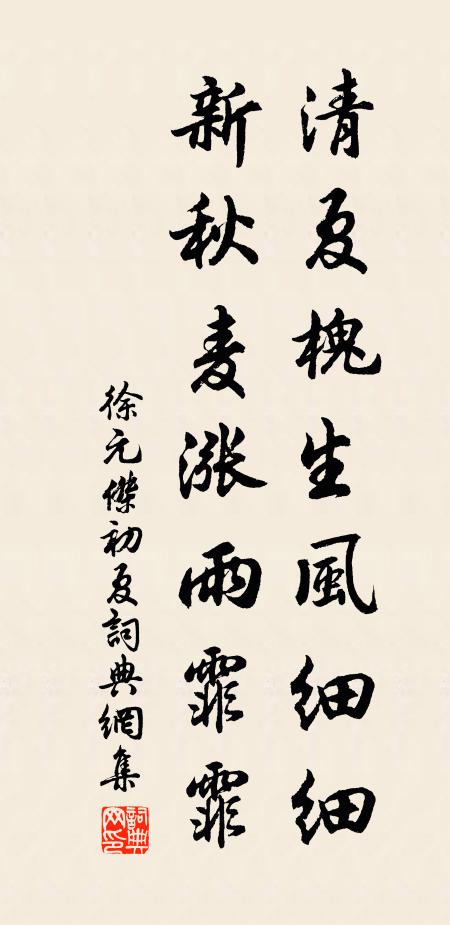 清夏槐生風細細
新秋麦漲雨霏霏
徐元傑初夏詞典網集
詞典网印